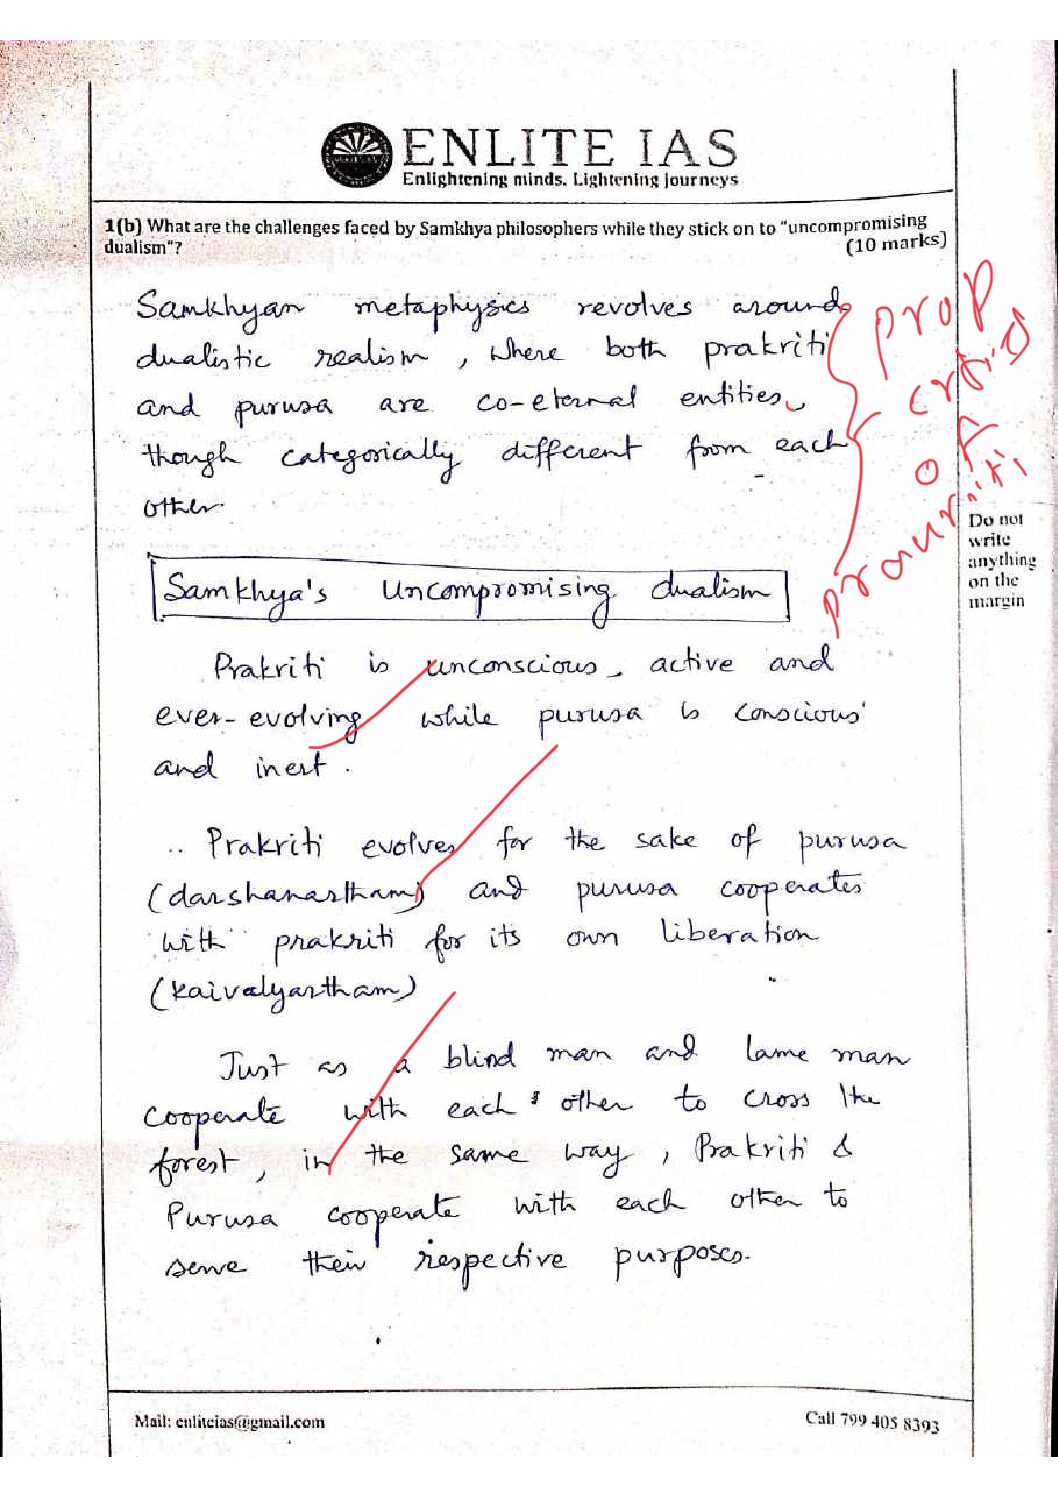 ENLITE IAS
Enlightening minds. Lightening journeys
1(b) What are the challenges faced by Samkhya philosophers while they stick on to "uncompromising
dualism"?
(10 marks)
Samkhyan metaphysics revolves around
dualistic realism, where both prakriti
and purusa are co-eternal entities,
though categorically different from each
other
prop
of
Do not
write
anything
on the
margin
Samkhya's Uncompromising dualism
Prakriti is unconscious, active and
ever-evolving while purusa is conscious
and inert.
Prakriti evolves for the sake of purusa
(darshanartham) and purusa cooperates
with prakriti for its own liberation
(kaivalyartham)
Just as a blind man and lame man
cooperate with each other to cross the
forest, in the same way, Prakriti &
Purusa cooperate with each other to
serve their respective purposes.
Mail: enliteias@gmail.com
Call 799 405 8393